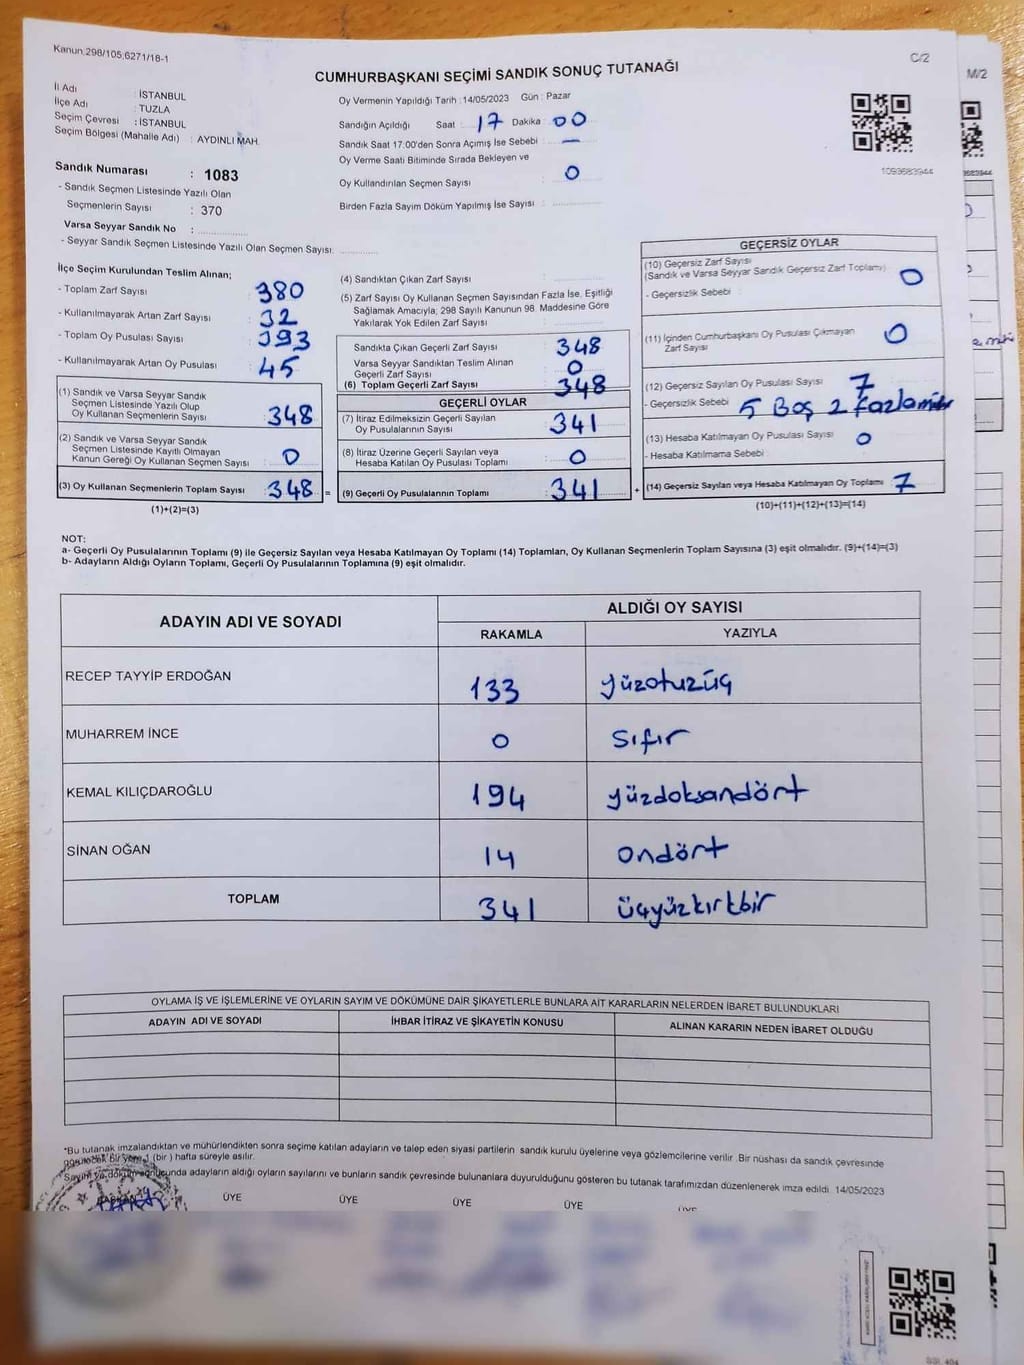 Kanun 298/105,6271/18-1
C/2
M/2
CUMHURBAŞKANI SEÇİMİ SANDIK SONUÇ TUTANAĞI
İl Adı : İSTANBUL
İlçe Adı : TUZLA
Seçim Çevresi : İSTANBUL
Seçim Bölgesi (Mahalle Adı) : AYDINLI MAH.
Oy Vermenin Yapıldığı Tarih : 14/05/2023 Gün : Pazar
Sandığın Açıldığı Saat : 17 Dakika : 00
Sandık Saat 17:00'den Sonra Açımış İse Sebebi : —
Oy Verme Saati Bitiminde Sırada Bekleyen ve
Oy Kullandırılan Seçmen Sayısı : 0
Birden Fazla Sayım Döküm Yapılmış İse Sayısı :
1093683944
Sandık Numarası : 1083
- Sandık Seçmen Listesinde Yazılı Olan
Seçmenlerin Sayısı : 370
Varsa Seyyar Sandık No :
- Seyyar Sandık Seçmen Listesinde Yazılı Olan Seçmen Sayısı:
İlçe Seçim Kurulundan Teslim Alınan;
- Toplam Zarf Sayısı : 380
- Kullanılmayarak Artan Zarf Sayısı : 32
- Toplam Oy Pusulası Sayısı : 393
- Kullanılmayarak Artan Oy Pusulası : 45
(1) Sandık ve Varsa Seyyar Sandık
Seçmen Listesinde Yazılı Olup
Oy Kullanan Seçmenlerin Sayısı : 348
(2) Sandık ve Varsa Seyyar Sandık
Seçmen Listesinde Kayıtlı Olmayan
Kanun Gereği Oy Kullanan Seçmen Sayısı : 0
(3) Oy Kullanan Seçmenlerin Toplam Sayısı : 348 =
(1)+(2)=(3)
(4) Sandıktan Çıkan Zarf Sayısı :
(5) Zarf Sayısı Oy Kullanan Seçmen Sayısından Fazla İse, Eşitliği
Sağlamak Amacıyla; 298 Sayılı Kanunun 98. Maddesine Göre
Yakılarak Yok Edilen Zarf Sayısı :
Sandıkta Çıkan Geçerli Zarf Sayısı : 348
Varsa Seyyar Sandıktan Teslim Alınan
Geçerli Zarf Sayısı : 0
(6) Toplam Geçerli Zarf Sayısı : 348
GEÇERLİ OYLAR
(7) İtiraz Edilmeksizin Geçerli Sayılan
Oy Pusulalarının Sayısı : 341
(8) İtiraz Üzerine Geçerli Sayılan veya
Hesaba Katılan Oy Pusulası Toplamı : 0
(9) Geçerli Oy Pusulalarının Toplamı : 341 +
GEÇERSİZ OYLAR
(10) Geçersiz Zarf Sayısı
(Sandık ve Varsa Seyyar Sandık Geçersiz Zarf Toplamı) : 0
- Geçersizlik Sebebi :
(11) İçinden Cumhurbaşkanı Oy Pusulası Çıkmayan
Zarf Sayısı : 0
(12) Geçersiz Sayılan Oy Pusulası Sayısı : 7
- Geçersizlik Sebebi : 5 Boş 2 fazla mühür
(13) Hesaba Katılmayan Oy Pusulası Sayısı : 0
- Hesaba Katılmama Sebebi :
(14) Geçersiz Sayılan veya Hesaba Katılmayan Oy Toplamı : 7
(10)+(11)+(12)+(13)=(14)
NOT:
a- Geçerli Oy Pusulalarının Toplamı (9) ile Geçersiz Sayılan veya Hesaba Katılmayan Oy Toplamı (14) Toplamları, Oy Kullanan Seçmenlerin Toplam Sayısına (3) eşit olmalıdır. (9)+(14)=(3)
b- Adayların Aldığı Oyların Toplamı, Geçerli Oy Pusulalarının Toplamına (9) eşit olmalıdır.
ADAYIN ADI VE SOYADI
ALDIĞI OY SAYISI
RAKAMLA YAZIYLA
RECEP TAYYİP ERDOĞAN 133 yüzotuzüç
MUHARREM İNCE 0 sıfır
KEMAL KILIÇDAROĞLU 194 yüzdoksandört
SİNAN OĞAN 14 ondört
TOPLAM 341 üçyüzkırkbir
OYLAMA İŞ VE İŞLEMLERİNE VE OYLARIN SAYIM VE DÖKÜMÜNE DAİR ŞİKAYETLERLE BUNLARA AİT KARARLARIN NELERDEN İBARET BULUNDUKLARI
ADAYIN ADI VE SOYADI İHBAR İTİRAZ VE ŞİKAYETİN KONUSU ALINAN KARARIN NEDEN İBARET OLDUĞU
*Bu tutanak imzalandıktan ve mühürlendikten sonra seçime katılan adayların ve talep eden siyasi partilerin sandık kurulu üyelerine veya gözlemcilerine verilir. Bir nüshası da sandık çevresinde
görülecek bir yere 1 (bir ) hafta süreyle asılır.
Sayım ve döküm sonucunda adayların aldığı oyların sayılarını ve bunların sandık çevresinde bulunanlara duyurulduğunu gösteren bu tutanak tarafımızdan düzenlenerek imza edildi. 14/05/2023
BAŞKAN ÜYE ÜYE ÜYE ÜYE ÜYE